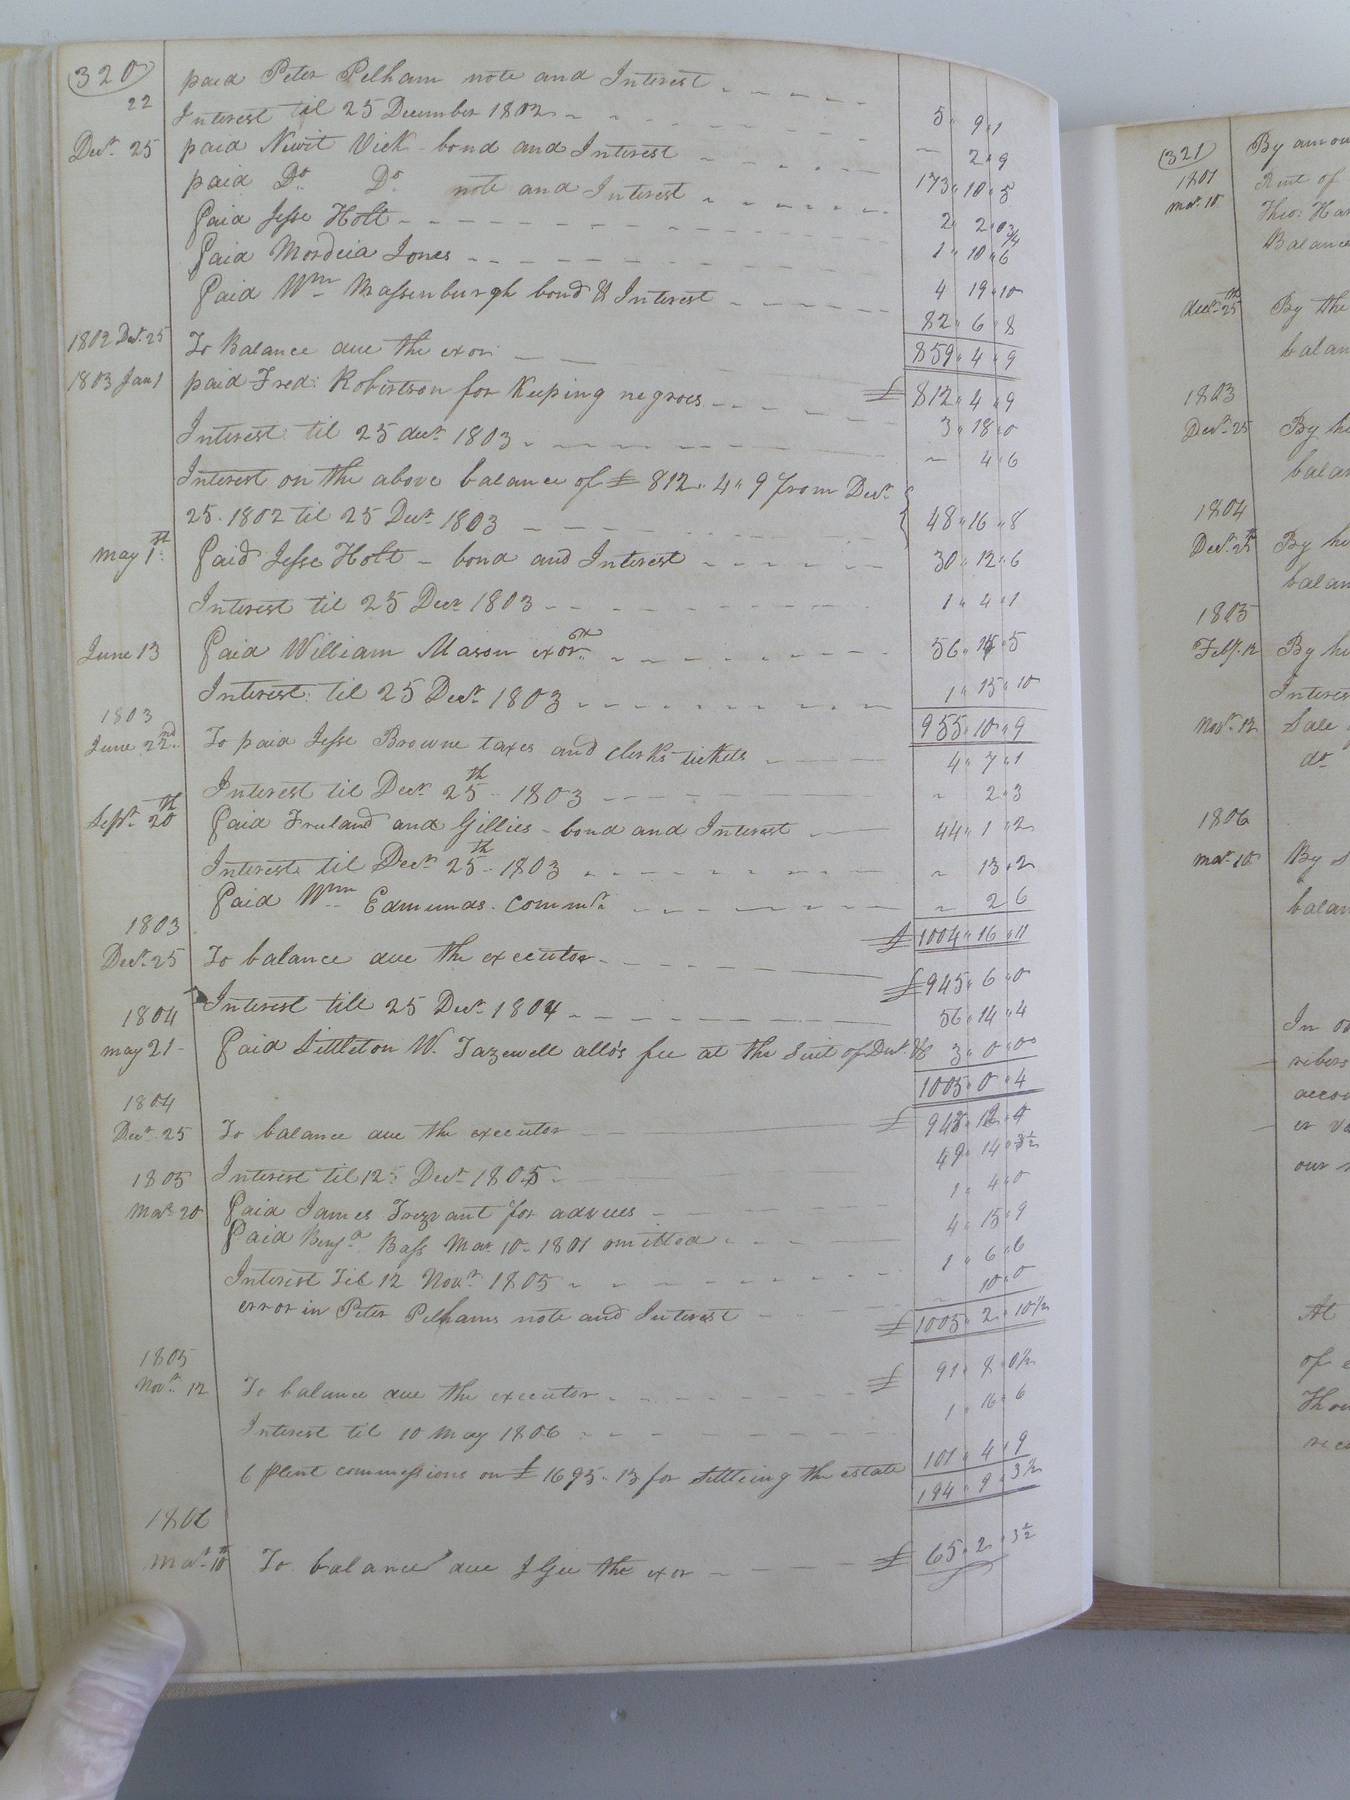 (320) paid Peter Pelham note and Interest 5 " 9 " 1
22 Interest til 25 December 1802 — " 2 " 9
Decr. 25 paid Newit Vick bond and Interest 173 " 10 " 5
paid Do. Do. note and Interest 2 " 2 " 0 3/4
Paid Jesse Holt 1 " 10 " 6
Paid Mordeia Jones 4 19 " 10
Paid Wm Massenburgh bond & Interest 82 " 6 " 8
859 " 4 " 9
1802 Decr. 25 To Balance due the exor £ 812 " 4 " 9
1803 Jany 1 paid Fred: Robertson for Keeping negroes 3 " 18 " 0
Interest til 25 decr. 1803 — 4 " 6
Interest on the above balance of £ 812 " 4 " 9 from Decr.
25. 1802 til 25 Decr. 1803 48 " 16 " 8
may 1st. Paid Jesse Holt - bond and Interest 30 " 12 " 6
Interest til 25 Decr. 1803 1 " 4 " 1
June 13 Paid William Mason exor. 56 " 15 " 5
Interest til 25 Decr. 1803 1 " 15 " 10
955 " 10 " 9
1803
June 22nd. To paid Jesse Browne taxes and clerks tickets 4 " 7 " 1
Interest til Decr. 25th. 1803 " 2 " 3
Septr. 20th Paid Freland and Gillies - bond and Interest 44 " 1 " 2
Interest til Decr. 25th. 1803 " 13 " 2
Paid Wm Edmunds. Commr. " 2 6
£ 1004 " 16 " 11
1803
Decr. 25 To balance due the executor £ 945 " 6 " 0
1804 Interest till 25 Decr. 1804 56 " 14 " 4
may 21 Paid Littleton W. Tazewell allo's fee at the Suit of 3 " 0 " 0
1005 " 0 " 4
1804
Decr. 25 To balance due the executor £
1805 Interest til 12 Decr. 1805 49 " 14 " 3½
Mar. 20 Paid James Trezvant for advices 1 " 4 " 0
Paid Benja. Bass Mar. 10 - 1801 omitted 4 " 15 " 9
Interest Til 12 Novr. 1805 1 " 6 " 6
error in Peter Pelhams note and Interest — 10 " 0
£ 1005 " 2 " 10½
1805
Novr. 12 To balance due the executor £ 91 " 8 " 0½
Interest til 10 May 1806 1 " 16 " 6
6 pCent commissions on £ 1695 " 13 for settleing the estate 101 " 4 " 9
194 " 9 " 3½
1806
Mar. 10th To balance due the exor £ 65 " 2 " 3½
(321) By amou
1801 Rent of
mar. 10 Theo: Har
Balance
decr. 25th By the
balan
1803
Decr. 25 By
balan
1804
Decr. 25th By
balan
1805
Feby. 12 By
Interes
Novr. 12 Sale
do
1806
mar. 10 By
balan
In
acco
our
At
of